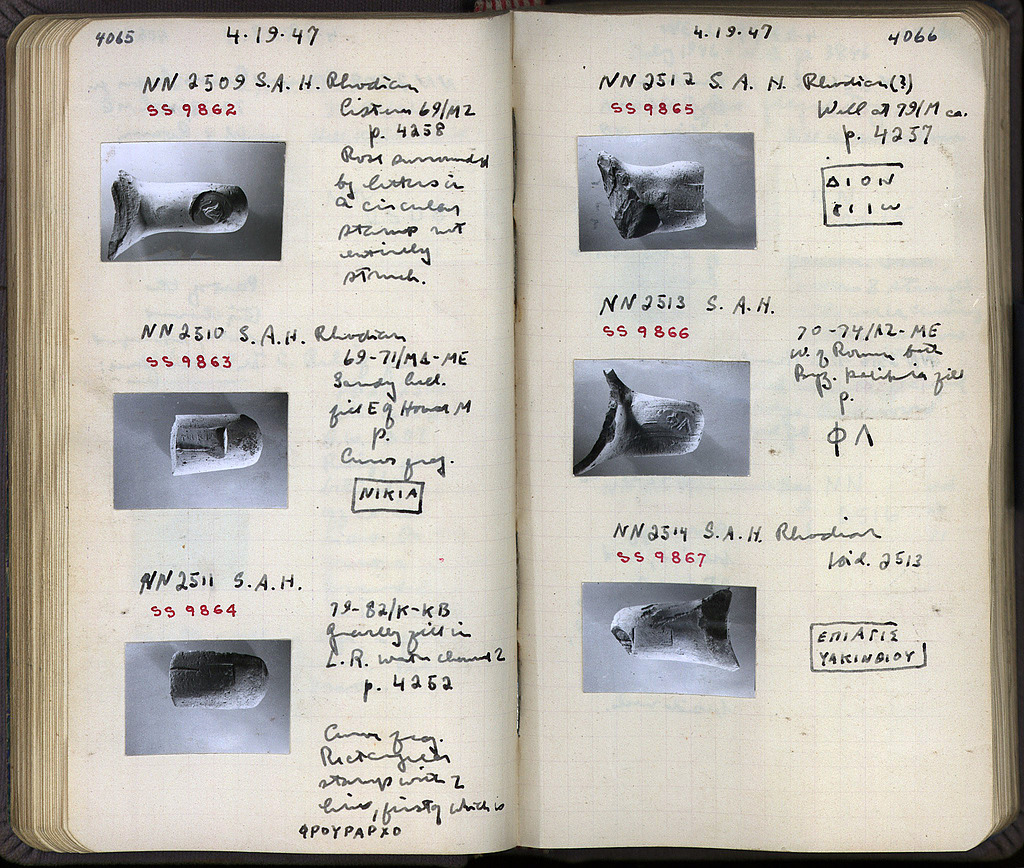 4065
4.19.47
NN 2509 S.A.H. Rhodian
SS 9862
Cistern 69/MZ
p. 4258
Rose surrounded
by letters in
a circular
stamp not
entirely
struck.
NN 2510 S.A.H. Rhodian
SS 9863
69-71/MΔ-ME
Sandy
fill E of House M
p.
Curve frag.
ΝΙΚΙΑ
NN 2511 S.A.H.
SS 9864
79-82/K-KB
Gravelly fill in
L.R. water channel 2
p. 4252
Curve frag.
Rectangular
stamp with 2
lines, first of which is
ΦΡΟΥΡΑΡΧΟ
4.19.47
4066
NN 2512 S.A.H. Rhodian(?)
SS 9865
Well at 79/M ca.
p. 4257
ΔΙΟΝ
NN 2513 S.A.H.
SS 9866
70-74/ΛZ-ME
W. of Roman
Byz. fill
p.
ΦΛ
NN 2514 S.A.H. Rhodian
SS 9867
ibid. 2513
ΕΠΙΑΓΙΣ
ΥΑΚΙΝΘΙΟΥ